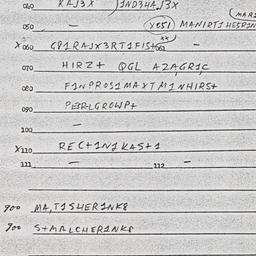 040 KAJ3X J1ND3HA,J3X (MARI
050 — (X051) MANIRT1HESP1N
X 060 GP1RAJX3RT1F1S+ 061 —
070 HIRZ+ QGL AZAGR1C
080 F1NPROS1MAXTM1NHIRS+
090 PERLGROWP+
100 —
X110 REC+1N1KAS+1
111 — 112 —
900 MA,T1SHER1NK8
900 S+MALCHER1NK8